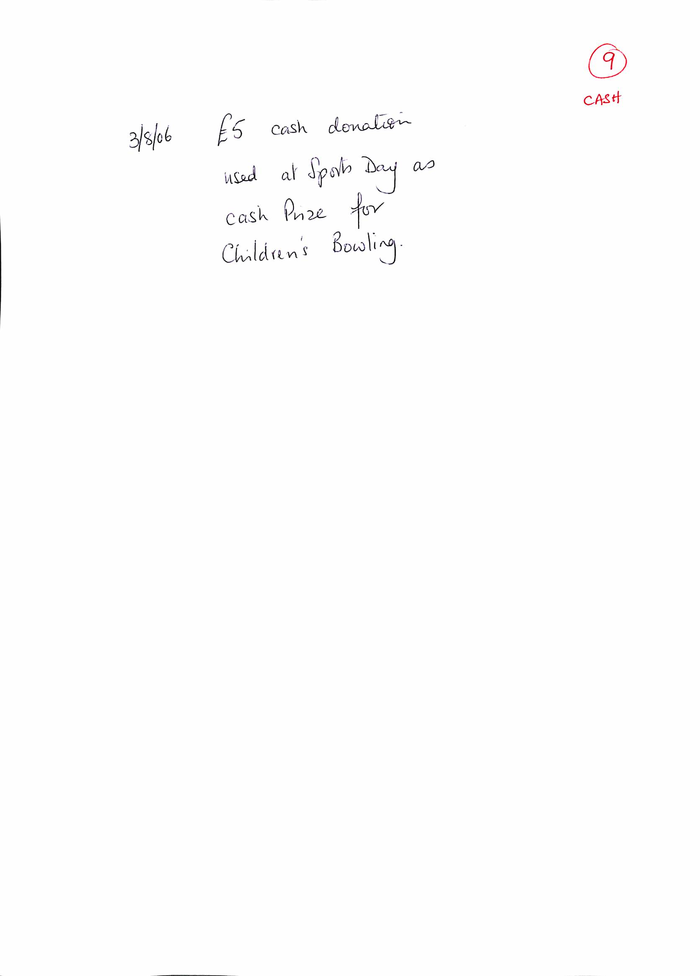 9
CASH
3/8/06 £5 cash donation
used at Sports Day as
cash Prize for
Children's Bowling.